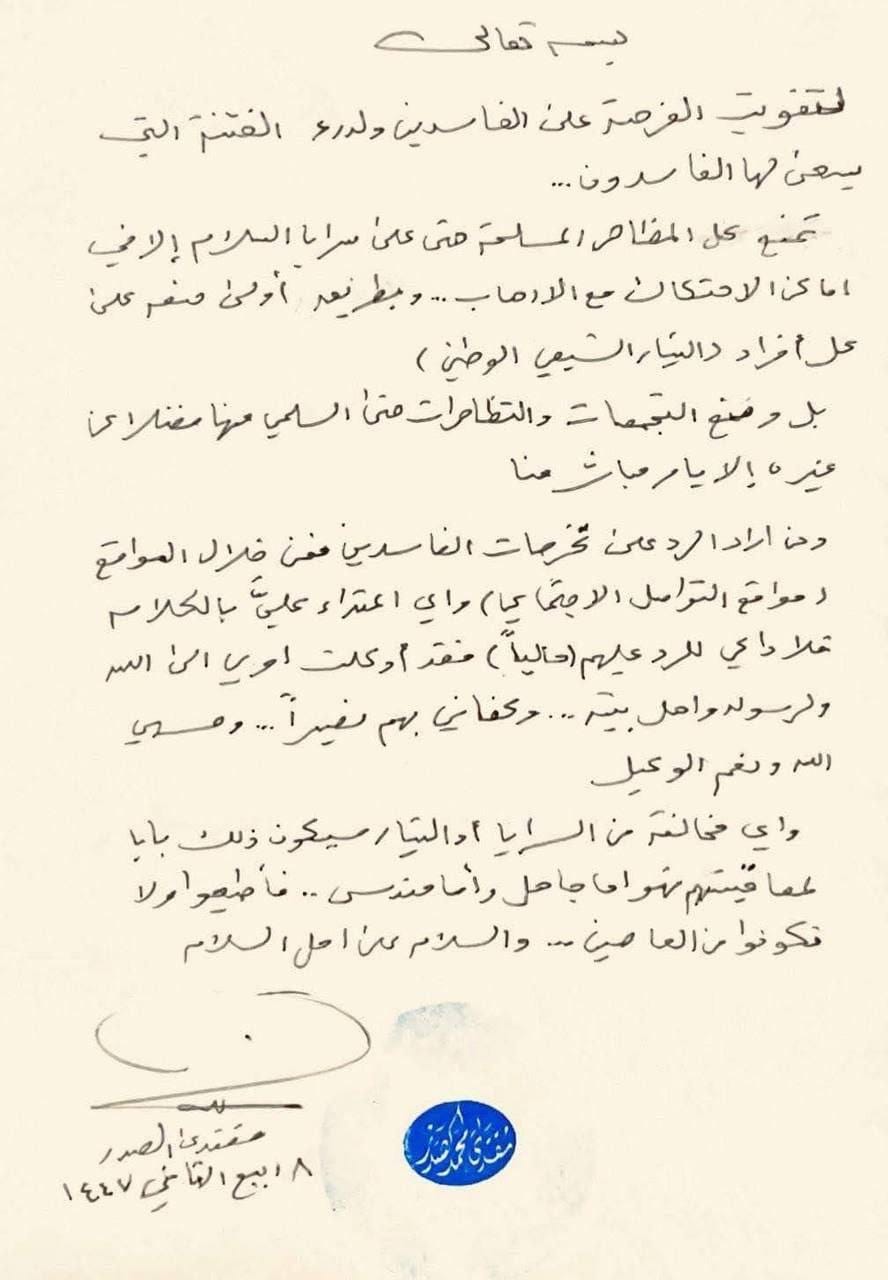 بسمه تعالى
لتفويت الفرصة على الفاسدين ولدرء الفتنة التي
يسعى لها الفاسدون...
تمنع كل المظاهر المسلحة حتى على سرايا السلام إلا في
اماكن الاحتكاك مع الارهاب... وبطريق أولى منعه على
كل أفراد (التيار الشيعي الوطني)
بل ومنع التجمعات والتظاهرات حتى السلمي منها فضلا عن
غيره إلا بأمر مباشر منا
ومن اراد الرد على تخرصات الفاسدين فمن خلال المواقع
(مواقع التواصل الاجتماعي) واي اعتداء عليَّ بالكلام
فلا داعي للرد عليهم (حالياً) فقد أوكلت امري الى الله
ولرسوله واهل بيته... وكفاني بهم نصيراً... وحسبي
الله ونعم الوكيل
واي مخالفة من السرايا أو التيار سيكون ذلك بابا
لمعاقبتهم فهو اما جاهل وأما مندس.. فأطيعوا ولا
تكونوا من العاصين... والسلام على اهل السلام
مقتدى الصدر
٨ ربيع الثاني ١٤٤٧
مقتدى محمد الصدر